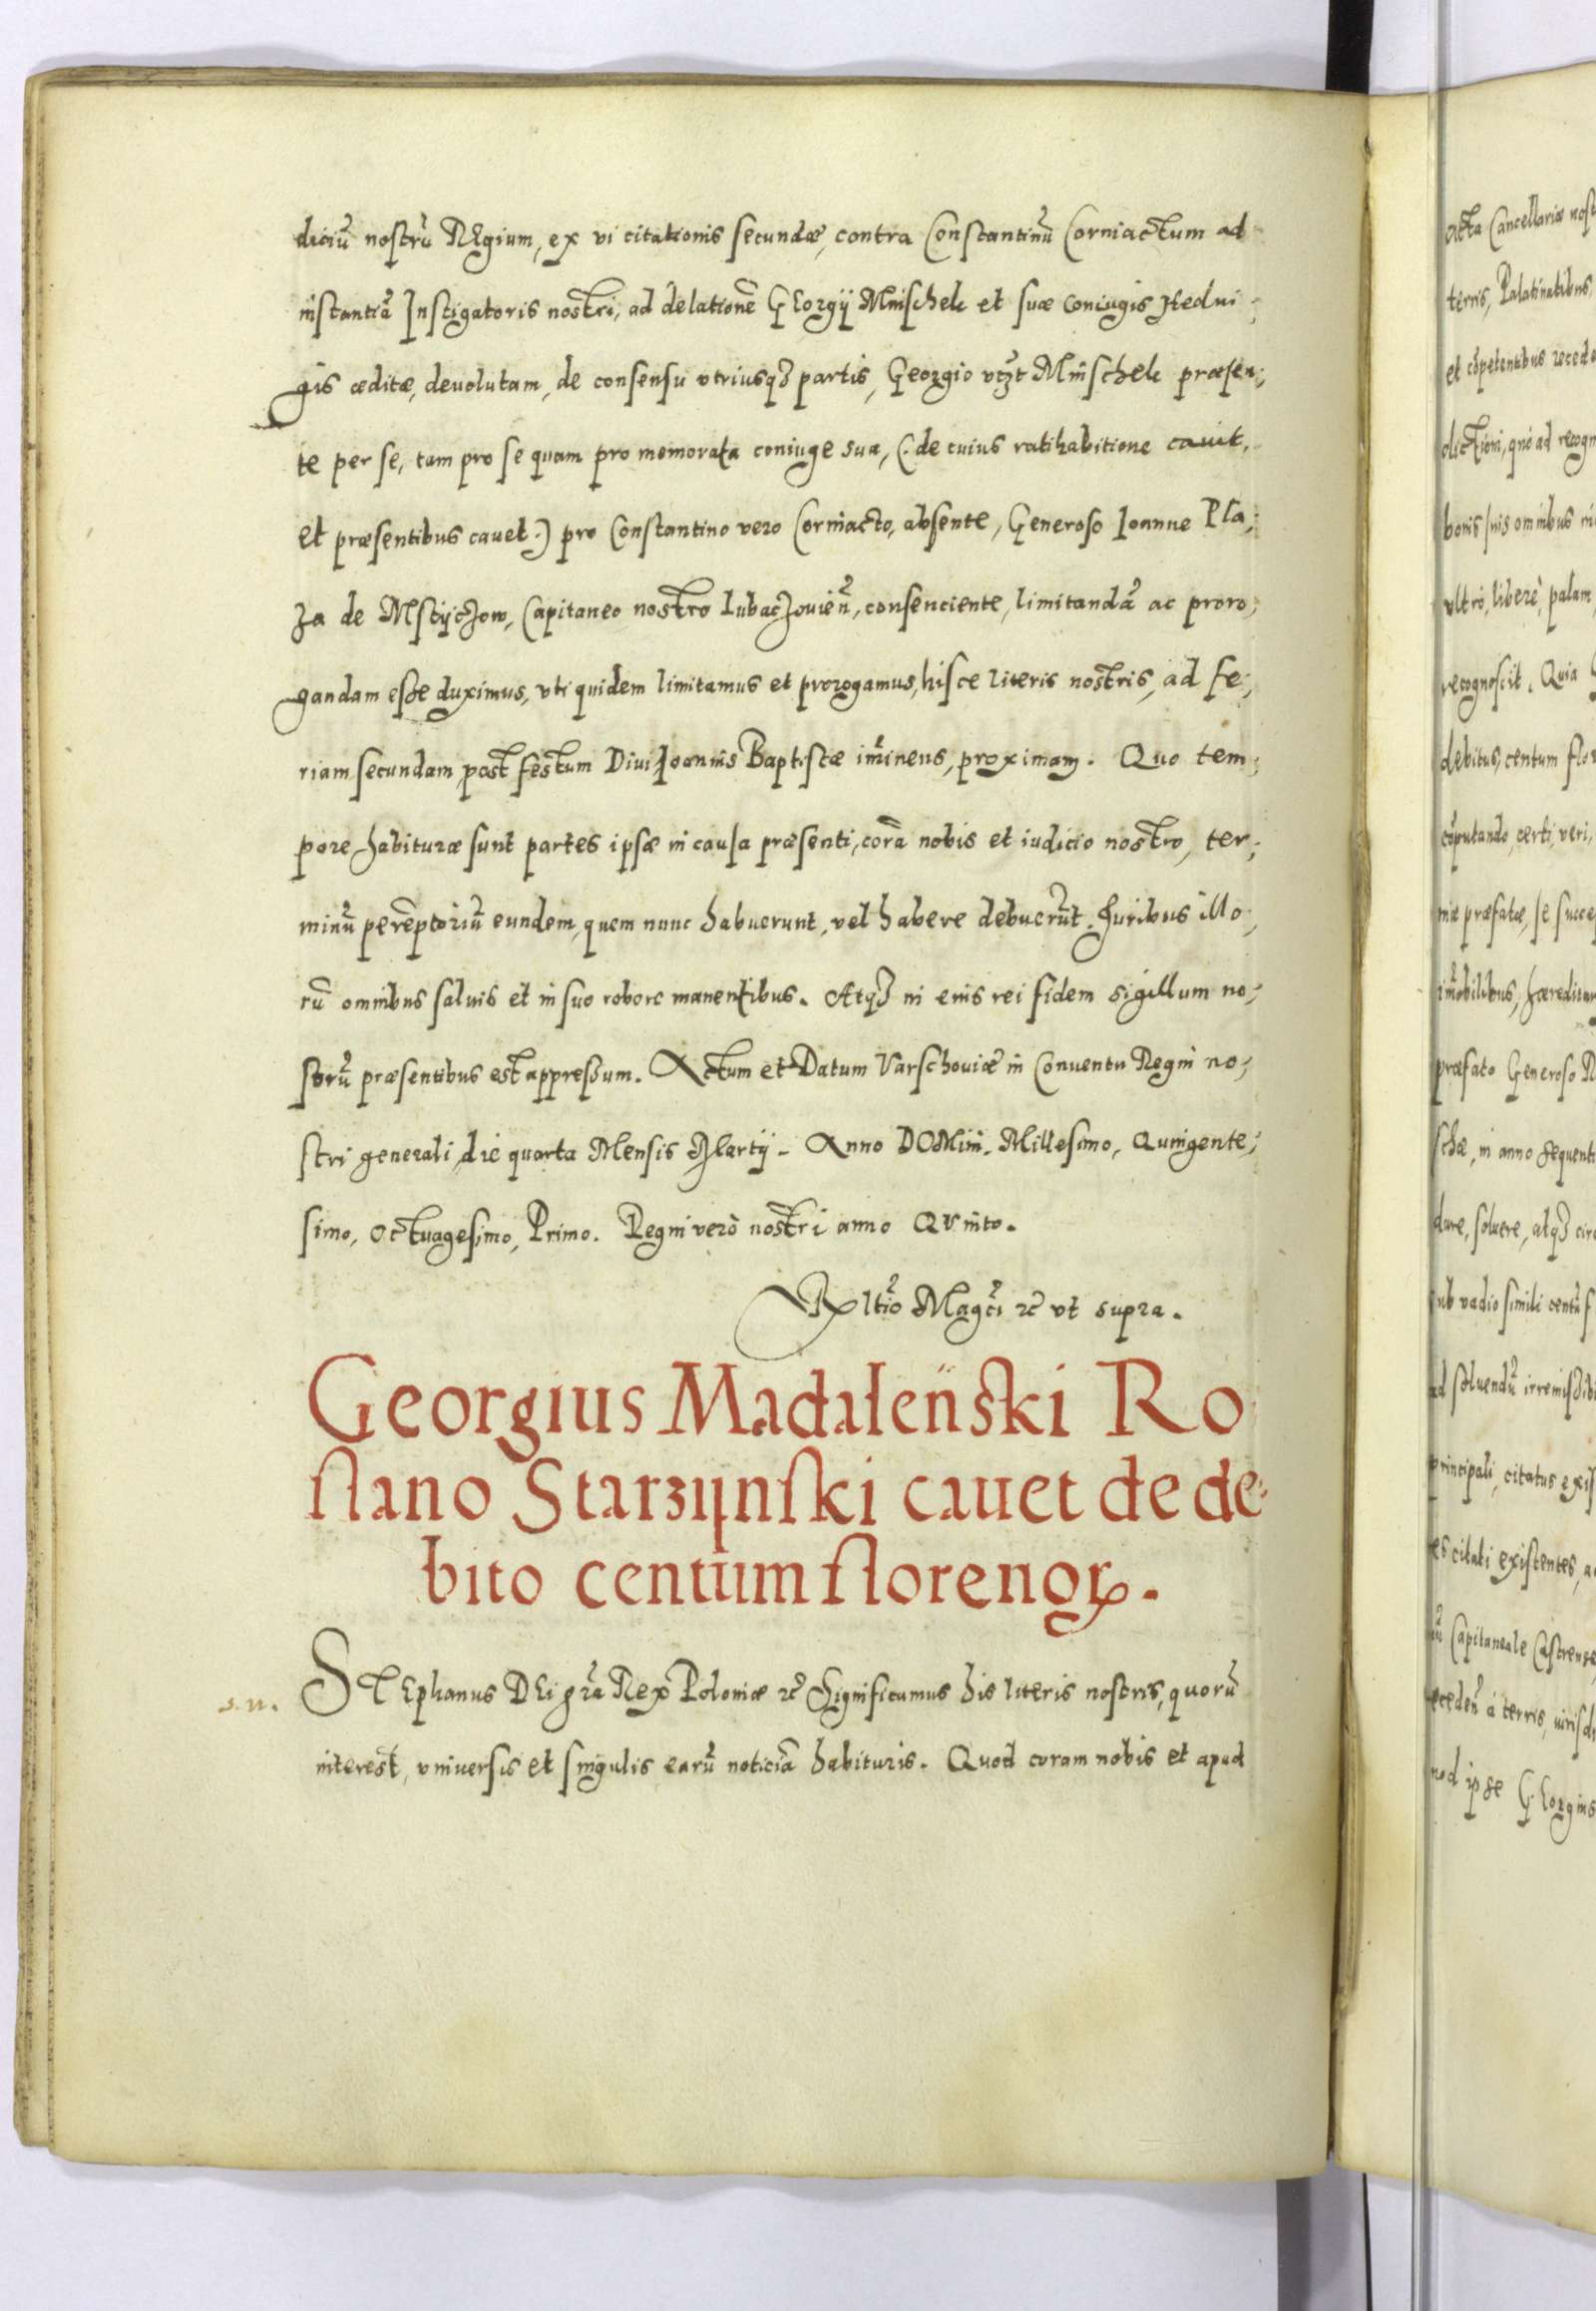 diciū nostrū REgium, ex vi citationis secundæ, contra Constantinū Corniactum ad
instantiā Instigatoris nostri, ad delationē GEorgij Mnischek et suæ coniugis Hedui-
gis æditæ, deuolutam, de consensu vtriusqȝ partis, Georgio vtȝt Mnischek præsen-
te per se, tam pro se quam pro memorata coniuge sua, (: de cuius ratihabitione cauit,
et præsentibus cauet :) pro Constantino vero Corniacto, absente, Generoso Ioanne Pla-
za de Mstijczow, Capitaneo nostro Lubaczouien̄, consenciente, limitandā ac proro-
gandam esse duximus, vti quidem limitamus et prorogamus, hisce literis nostris, ad fe-
riam secundam, post festum Diui Ioannis Baptistæ im̄inens, proximam. Quo tem-
pore habituræ sunt partes ipsæ in causa præsenti, corā nobis et iudicio nostro, ter-
minū perēptoriū eundem, quem nunc habuerunt, vel habere debuerūt. Iuribus illo-
rū omnibus saluis et in suo robore manentibus. Atqȝ in eius rei fidem sigillum no-
strū præsentibus est appressum. Actum et Datum Varschouiæ in Conuentu Regni no-
stri generali, die quarta Mensis Martij. Anno DOMini. Millesimo, Quingente-
simo, Octuagesimo, Primo. Regni verò nostri anno QVinto.
Rltio Magci ꝛc vt supra.
Georgius Madaleński Ro
slano Starzijnski cauet de de-
bito centum florenoꝝ.
s. n.
STEphanus DEi grā Rex Poloniæ ꝛc Significamus his literis nostris, quorū
interest, vniuersis et singulis, earū noticiā habituris. Quod coram nobis et apud
Acta Cancellariæ nost
terris, Palatinatibus,
et cōpetentibus recede
dictioni, quò ad recogn
bonis suis omnibus
vltrò, liberè, palam
recognoscit. Quia
debitus, centum flor
cōputando, certi, veri,
præfatæ, se succe
im̄obilibus, hæreditar
præfato Generoso
schæ, in anno sequenti
dare, soluere, atqȝ
sub vadio simili centū f
ad soluendū irremissibi
principali, citatus
citati existentes,
Capitaneale Castrense
à terris,
ipse GEorgius